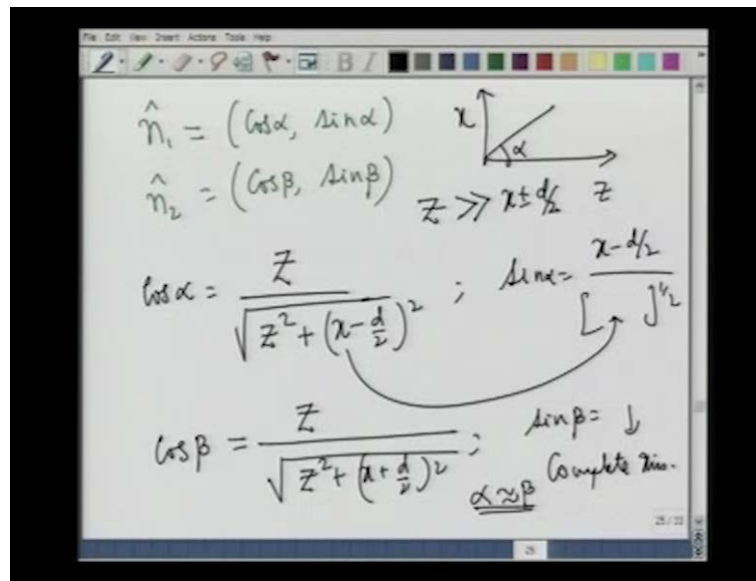 File Edit View Insert Actions Tools Help
B I
n̂₁ = (Cosα, sinα)
n̂₂ = (Cosβ, Sinβ)
x
α
z
Z >> x ± d/2
Cosα = Z / √(Z² + (x - d/2)²) ; sinα = (x - d/2) / [ ]^1/2
Cosβ = Z / √(Z² + (x + d/2)²) ; sinβ = ↓
Complete this.
α ≈ β
25/33
25